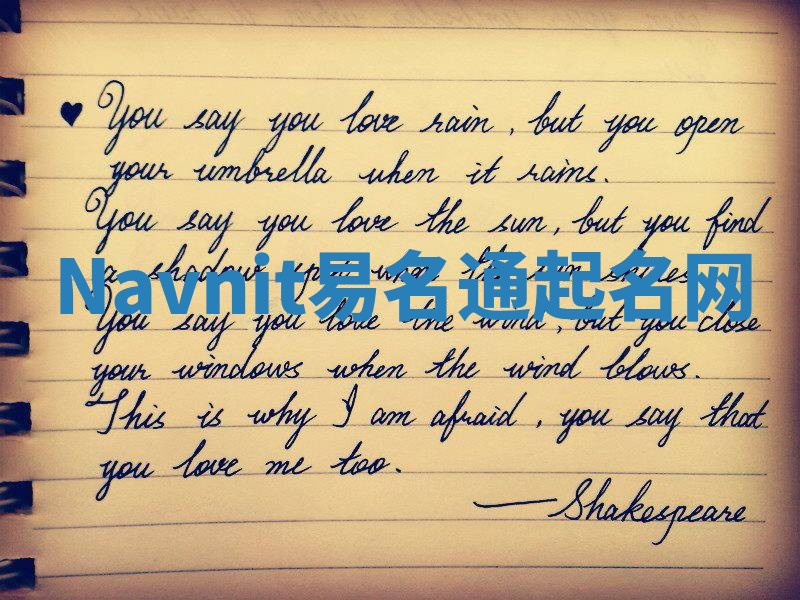 You say you love rain, but you open
your umbrella when it rains.
You say you love the sun, but you find
a shadow spot when the sun shines.
Navnit易名通起名网
You say you love the wind, but you close
your windows when the wind blows.
This is why I am afraid, you say that
you love me too.
—Shakespeare